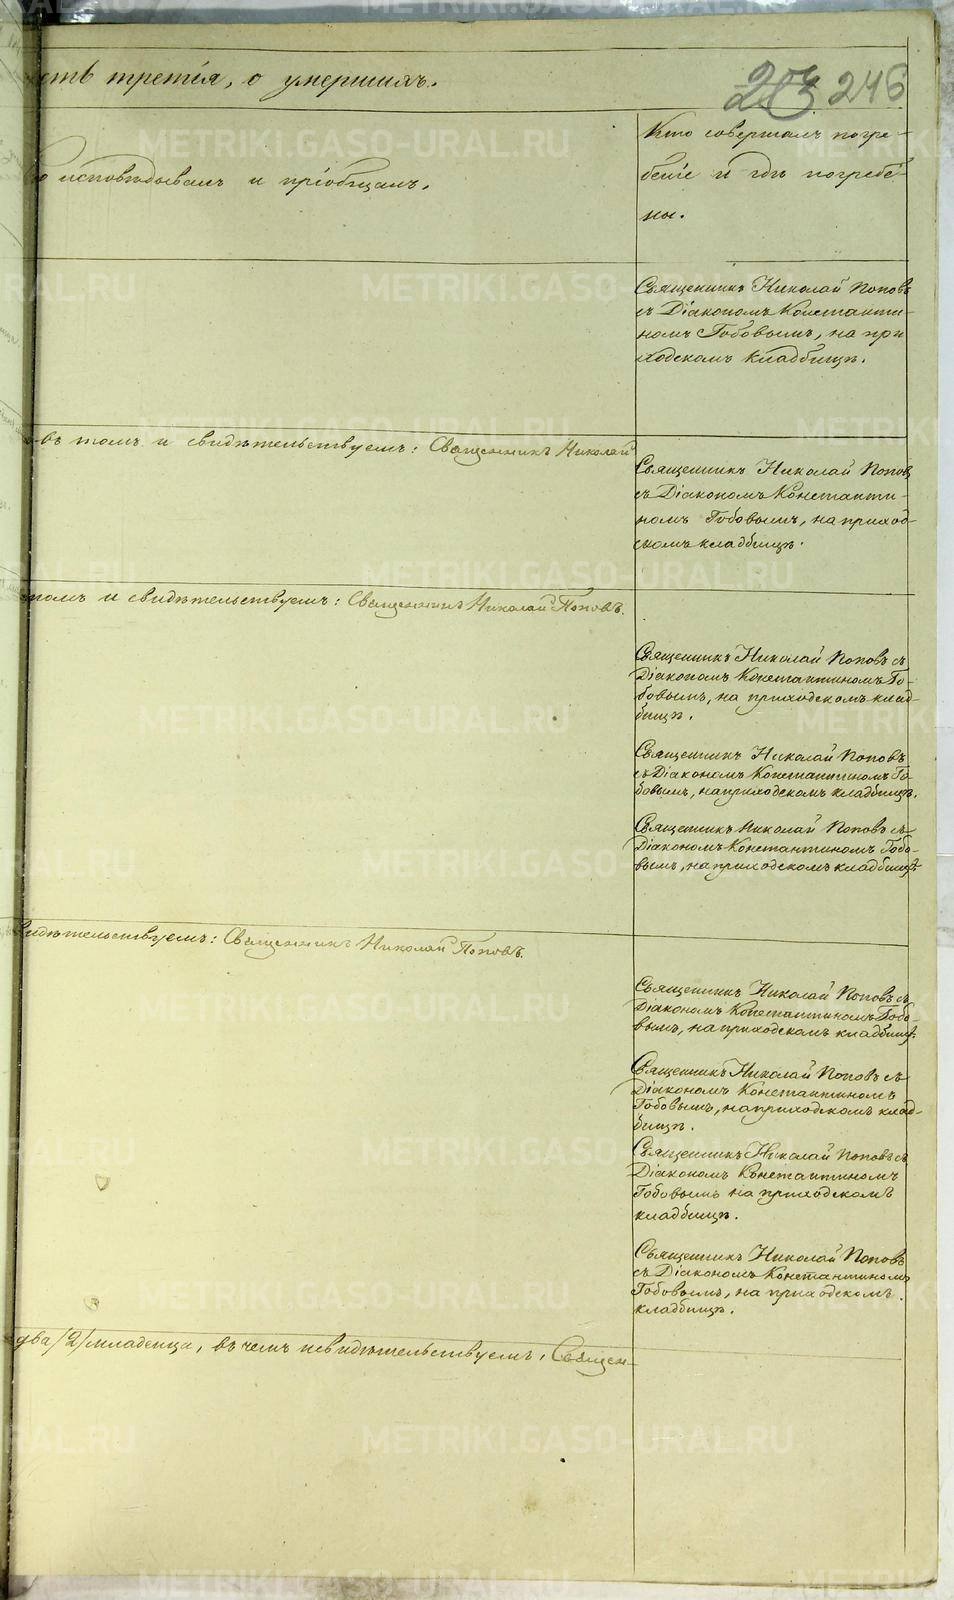 сть третія, о умершихъ.
203 246
исповѣдывалъ и пріобщалъ.
Кто совершалъ погре-
беніе и гдѣ погребе-
ны.
Священникъ Николай Поповъ
съ Діакономъ Константи-
номъ Гобовымъ, на при
ходскомъ кладбищѣ.
въ томъ и свидѣтельствуемъ: Священникъ Николай
Священникъ Николай Поповъ
съ Діакономъ Константи-
номъ Гобовымъ, на приход-
скомъ кладбищѣ.
томъ и свидѣтельствуемъ: Священникъ Николай Поповъ.
Священникъ Николай Поповъ съ
Діакономъ Константиномъ Го-
бовымъ, на приходскомъ клад-
бищѣ.
Священникъ Николай Поповъ
съ Діакономъ Константиномъ Го-
бовымъ, на приходскомъ кладбищѣ.
Священникъ Николай Поповъ съ
Діакономъ Константиномъ Гобо-
вымъ, на приходскомъ кладбищѣ
видѣтельствуемъ: Священникъ Николай Поповъ.
Священникъ Николай Поповъ съ
Діакономъ Константиномъ Гобо-
вымъ, на приходскомъ кладбищѣ.
Священникъ Николай Поповъ съ
Діакономъ Константиномъ
Гобовымъ, на приходскомъ клад-
бищѣ.
Священникъ Николай Поповъ съ
Діакономъ Константиномъ
Гобовымъ на приходскомъ
кладбищѣ.
Священникъ Николай Поповъ
съ Діакономъ Константиномъ
Гобовымъ, на приходскомъ
кладбищѣ.
два /2/ младенца, въ чемъ и свидѣтельствуемъ, Священ-
METRIKI.GASO-URAL.RU